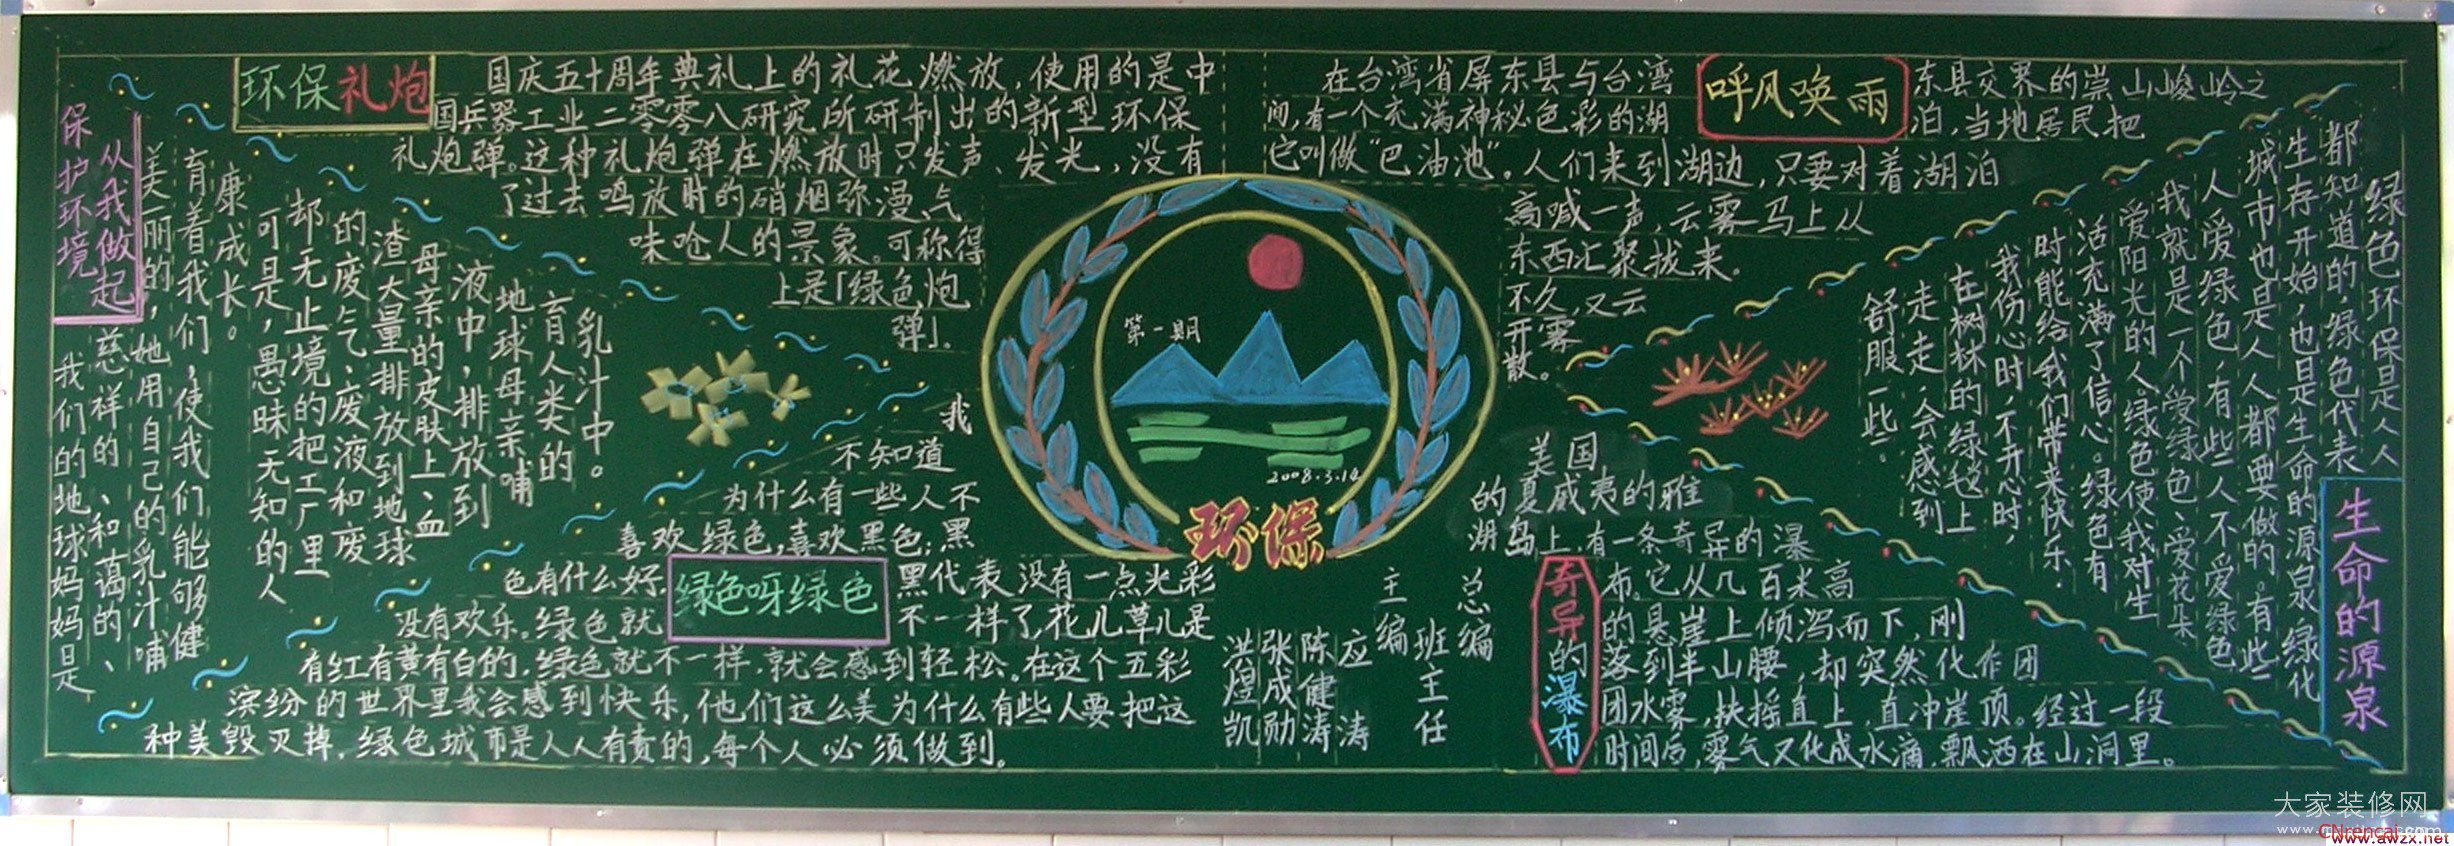 环保礼炮
国庆五十周年典礼上的礼花燃放，使用的是中
国兵器工业二零零八研究所研制出的新型环保
礼炮弹。这种礼炮弹在燃放时只发声、发光，没有
了过去鸣放时的硝烟弥漫、气
味呛人的景象。可称得
上是「绿色炮
弹」。
呼风唤雨
在台湾省屏东县与台湾东县交界的崇山峻岭之
间，有一个充满神秘色彩的湖泊，当地居民把
它叫做“巴油池”。人们来到湖边，只要对着湖泊
高喊一声，云雾马上从
东西汇聚拢来。
不久，又云
开雾
散。
保护环境
从我做起
我们的地球妈妈是
慈祥的、和蔼的、
美丽的，她用自己的乳汁哺
育着我们，使我们能够健
康成长。
可是，愚昧无知的人
却无止境的把工厂里
的废气、废液和废
渣大量排放到地球
母亲的皮肤上、血
液中，排放到
地球母亲哺
育人类的
乳汁中。
绿色呀绿色
我
不知道
为什么有一些人不
喜欢绿色，喜欢黑色；黑
色有什么好.黑代表没有一点光彩
没有欢乐。绿色就不一样了，花儿草儿是
有红有黄有白的，绿色就不一样，就会感到轻松。在这个五彩
滨纷的世界里我会感到快乐，他们这么美为什么有些人要把这
种美毁灭掉，绿色城市是人人有责的，每个人必须做到。
第一期
2008.3.14
环保
总编
班主任
主编
应涛
陈健涛
张成勋
洪煜凯
奇异的瀑布
美国
的夏威夷的雅
湖岛上，有一条奇异的瀑
布。它从几百米高
的悬崖上倾泻而下，刚
落到半山腰，却突然化作团
团水雾，扶摇直上，直冲崖顶。经过一段
时间后，雾气又化成水滴，飘洒在山洞里。
生命的源泉
绿色环保是人人
都知道的，绿色代表
生存开始，也是生命的源泉，绿化
城市也是人人都要做的。有些
人爱绿色，有些人不爱绿色
我就是一个爱绿色、爱花朵
爱阳光的人。绿色使我对生
活充满了信心。绿色有
时能给我们带来快乐.
我伤心时，不开心时，
在树林的绿毯上
走走，会感到
舒服一些。
大家装修网
CNrencai
www.awzx.net